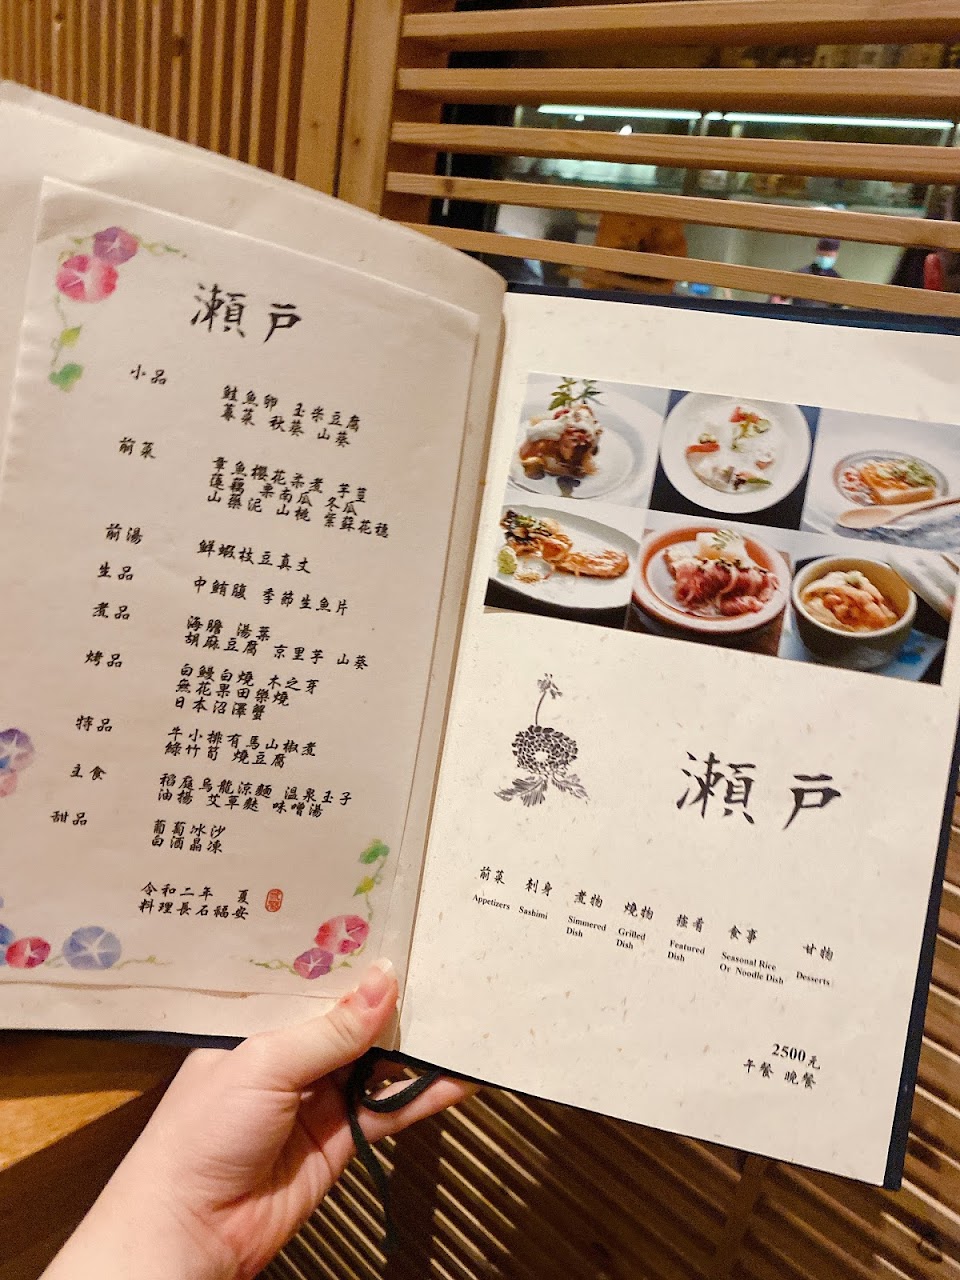 瀨戶
小品
鮭魚卵 玉米豆腐
蓴菜 秋葵 山葵
前菜
章魚櫻花柔煮 芋荳
蓮藕 栗南瓜 冬瓜
山藥泥 山桃 紫蘇花穗
前湯
鮮蝦枝豆真丈
生品
中鮪腹 季節生魚片
煮品
海膽 湯葉
胡麻豆腐 京里芋 山葵
烤品
白鰻白燒 木之芽
無花果田樂燒
日本沼澤蟹
特品
牛小排有馬山椒煮
綠竹筍 燒豆腐
主食
稻庭烏龍涼麵 溫泉玉子
油揚 艾草麩 味噌湯
甜品
葡萄冰沙
白酒晶凍
令和二年 夏
料理長石福安
瀨戶
前菜 刺身 煮物 燒物 強肴 食事 甘物
Appetizers Sashimi Simmered Dish Grilled Dish Featured Dish Seasonal Rice Or Noodle Dish Desserts
2500元
午餐 晚餐